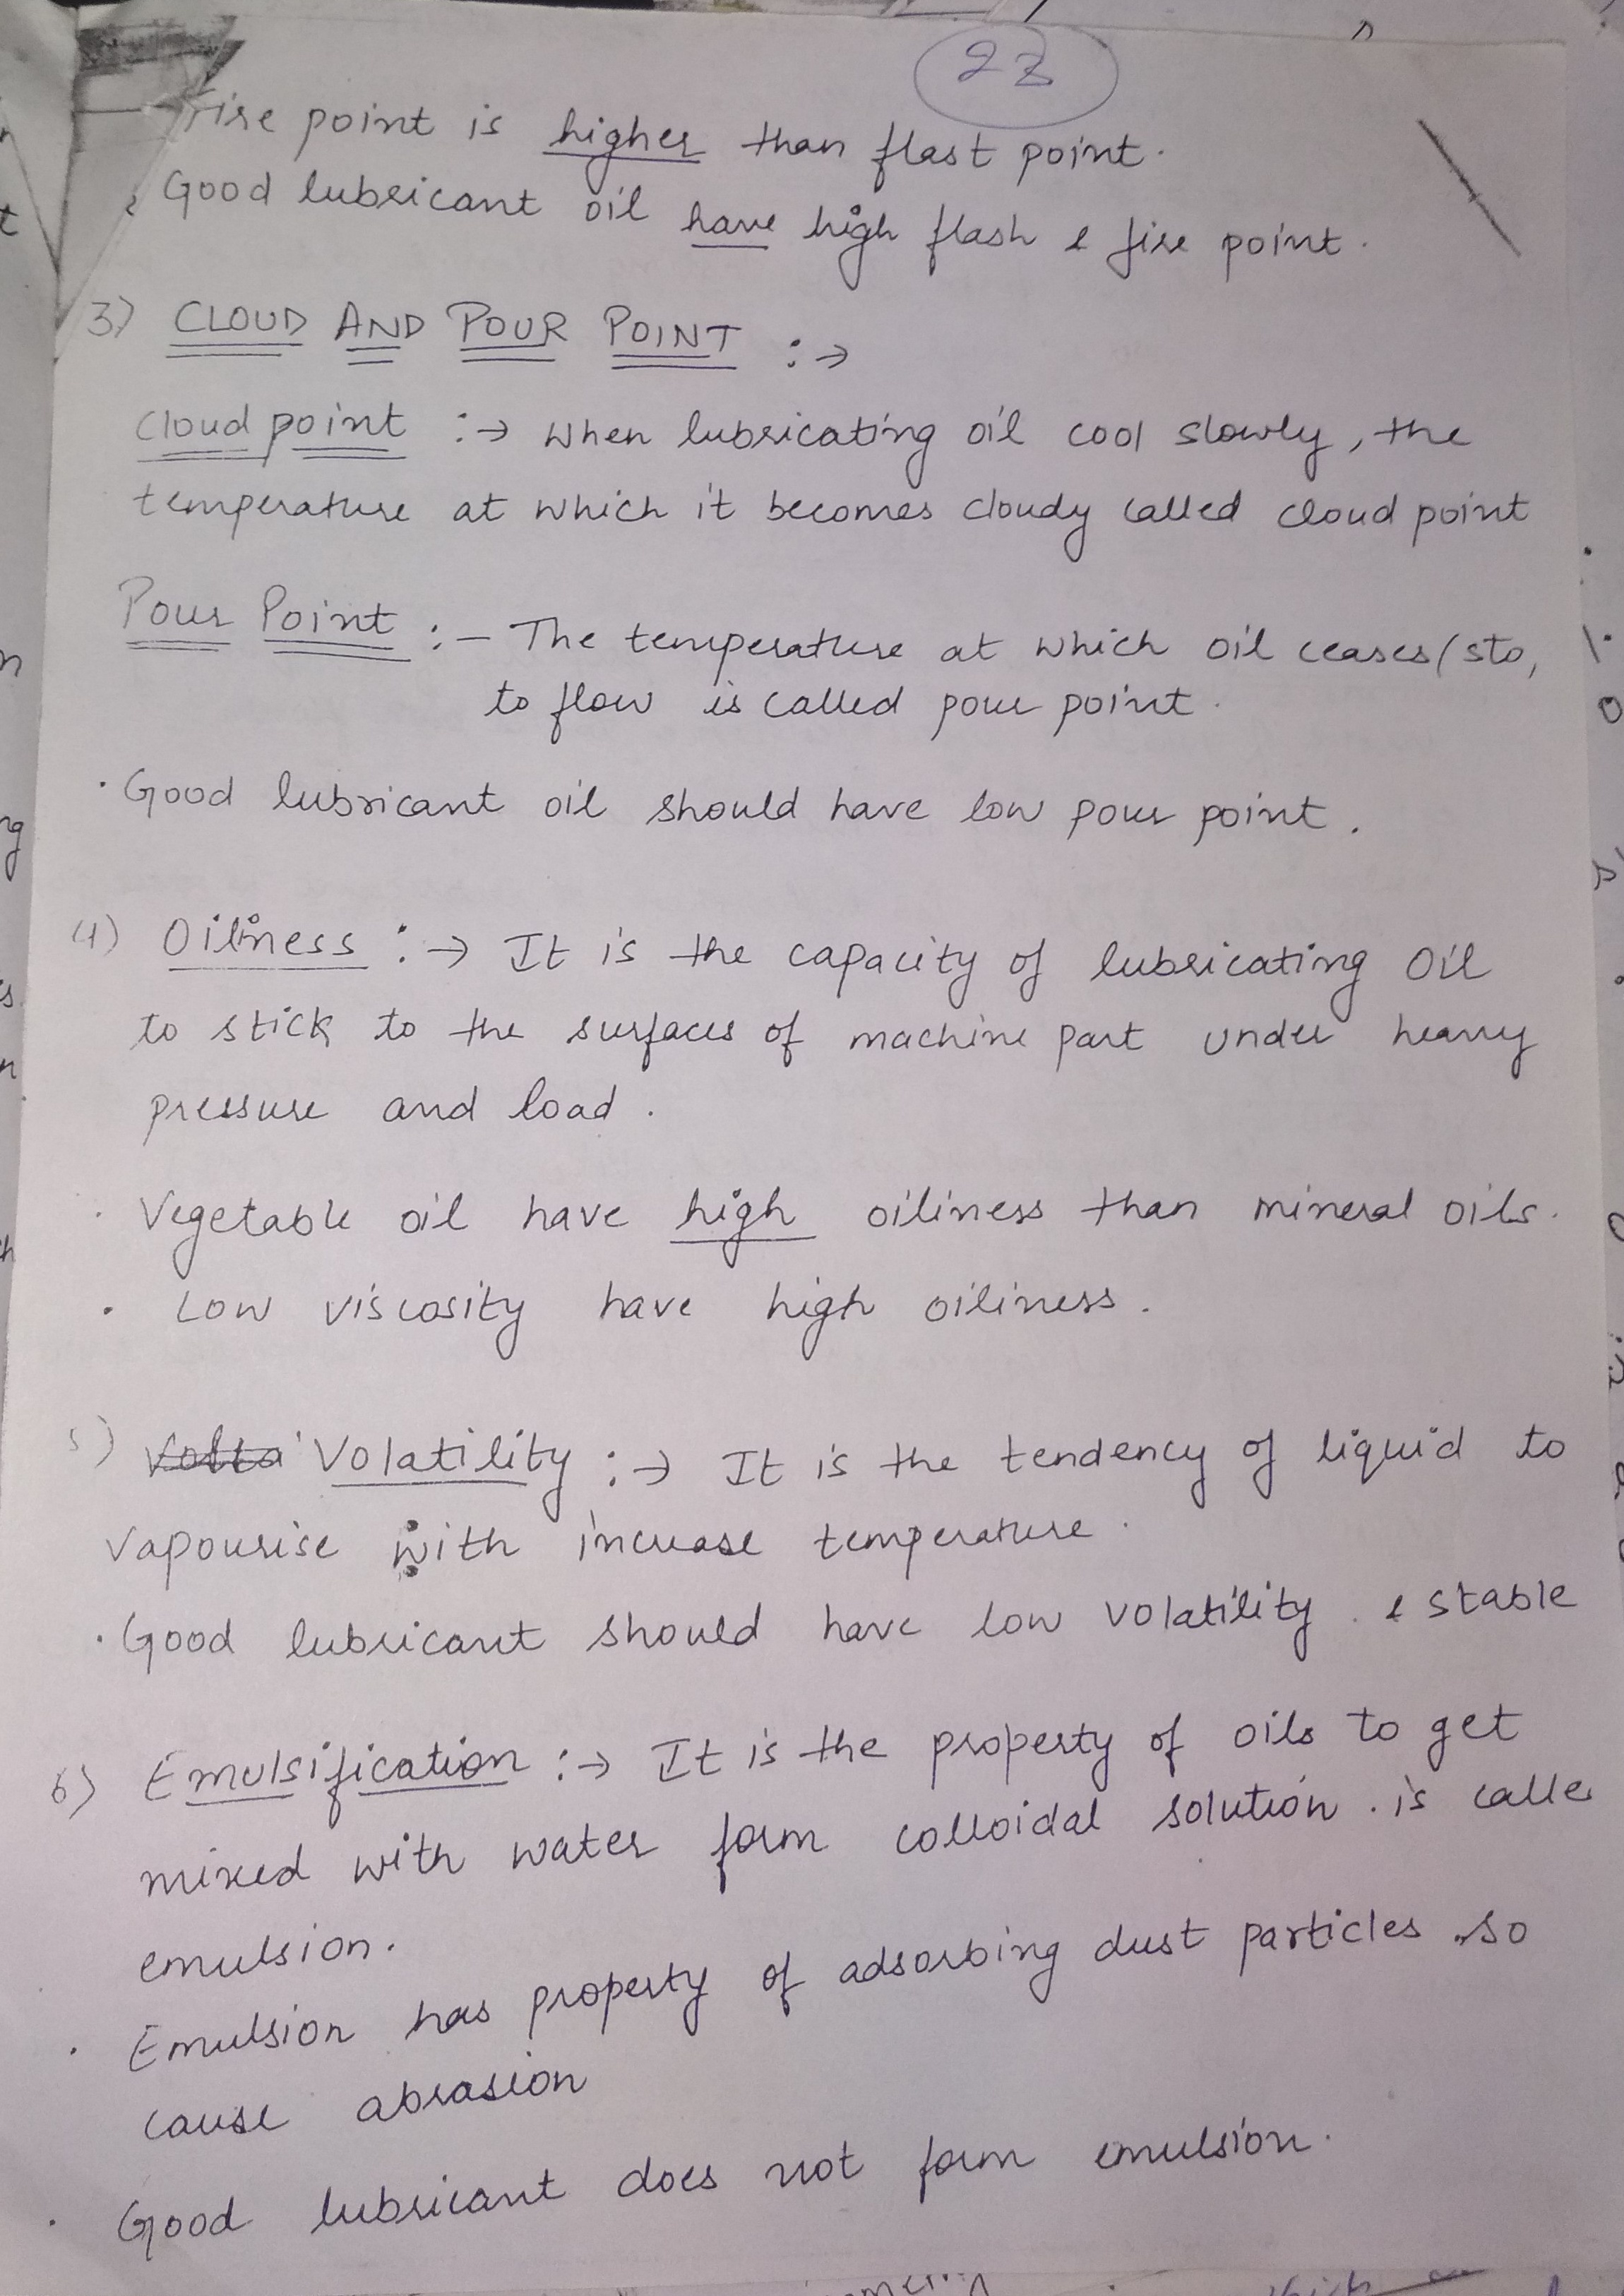 22
Fire point is higher than flast point.
Good lubricant oil have high flash & fire point.
3) CLOUD AND POUR POINT :→
Cloud point :→ When lubricating oil cool slowly, the
temperature at which it becomes cloudy called cloud point
Pour Point :- The temperature at which oil ceases (sto
to flow is called pour point.
· Good lubricant oil should have low pour point.
4) Oiliness :→ It is the capacity of lubricating oil
to stick to the surfaces of machine part under heavy
pressure and load.
· Vegetable oil have high oiliness than mineral oils.
· Low viscosity have high oiliness.
5) Volatility :→ It is the tendency of liquid to
vapourise with increase temperature.
· Good lubricant should have low volatility. & stable
6) Emulsification :→ It is the property of oils to get
mixed with water form colloidal solution. is calle
emulsion.
· Emulsion has property of adsorbing dust particles. so
cause abrasion
· Good lubricant does not form emulsion.